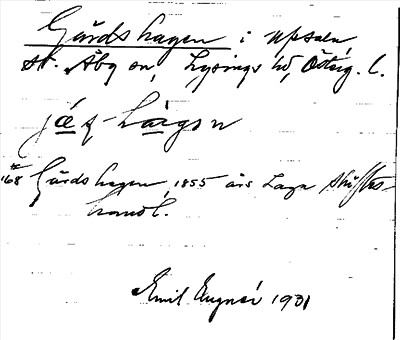 Gärdshagen i Uppsala,
st. Åby sn, Lysings hd, Östg. l.
jæʂ-hàgən
*168 Gärdshagen, 1855 års Laga skiftes-
handl.
Emil 1901